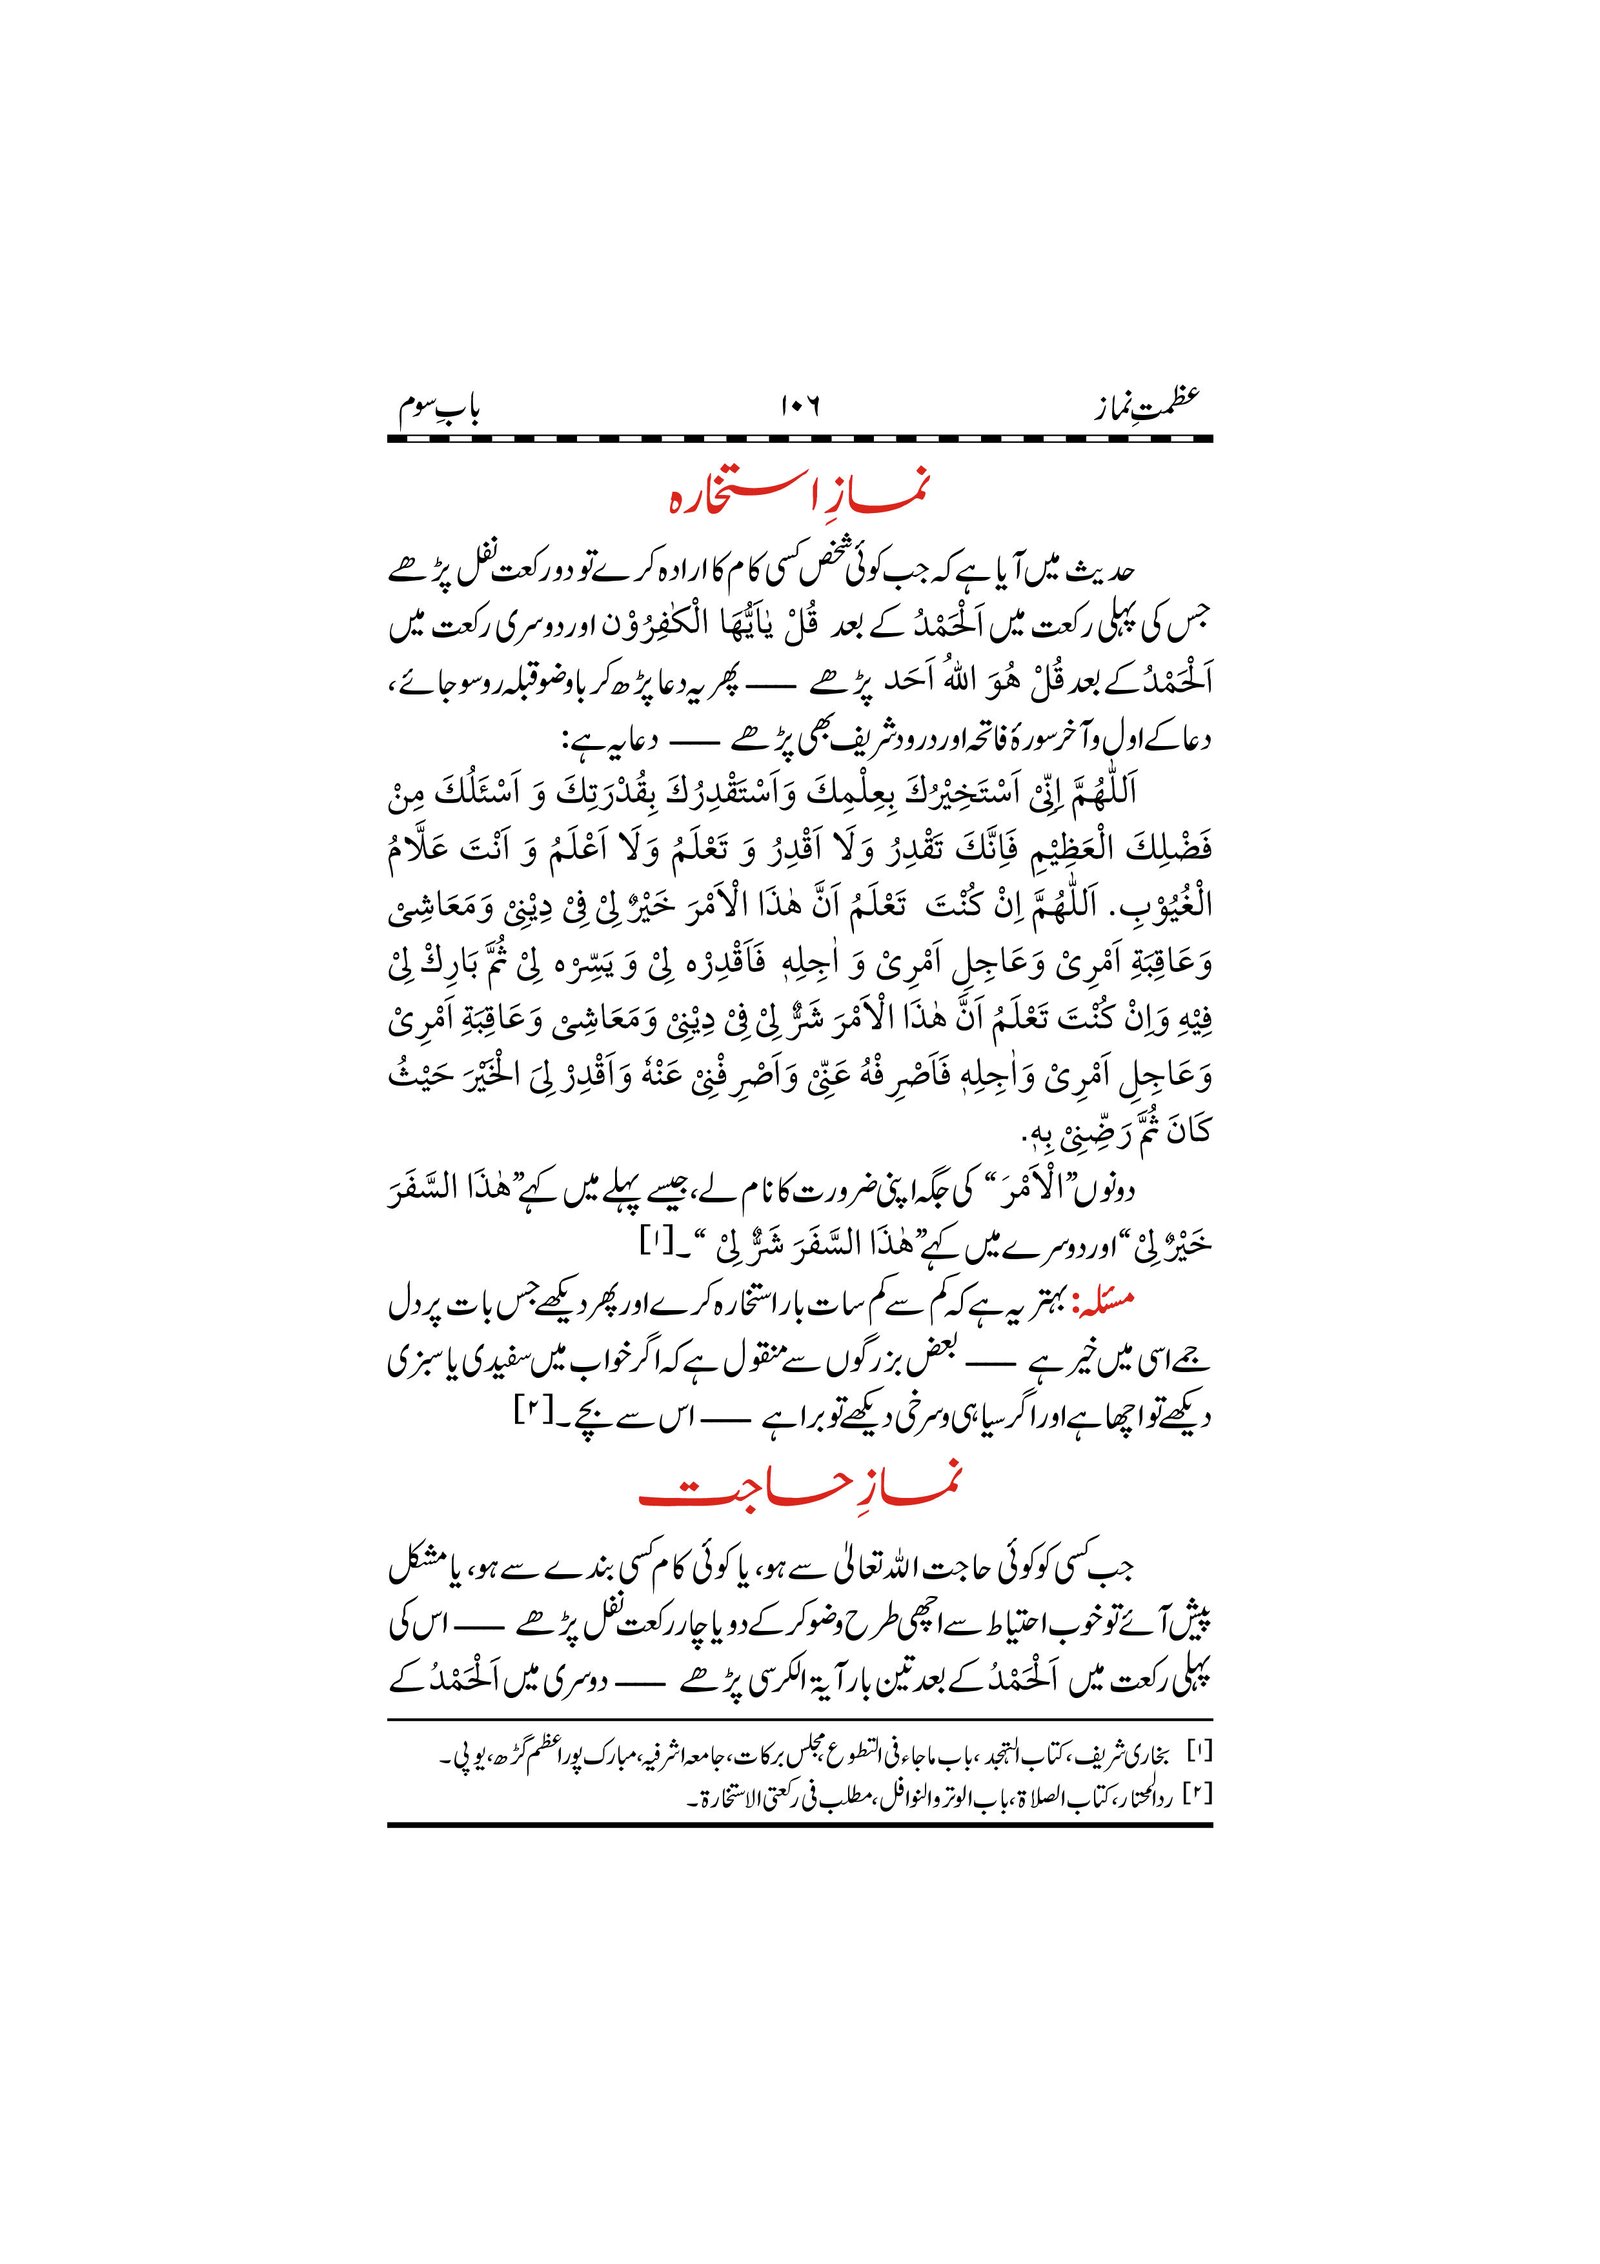 عظمتِ نماز ۱۰۶ بابِ سوم
نمازِ استخارہ
حدیث میں آیا ہے کہ جب کوئی شخص کسی کام کا ارادہ کرے تو دو رکعت نفل پڑھے
جس کی پہلی رکعت میں اَلْحَمْدُ کے بعد قُلْ یٰاَیُّھَا الْکٰفِرُوْن اور دوسری رکعت میں
اَلْحَمْدُ کے بعد قُلْ هُوَ اللهُ اَحَد پڑھے —— پھر یہ دعا پڑھ کر باوضو قبلہ رو سو جائے،
دعا کے اول و آخر سورۂ فاتحہ اور درود شریف بھی پڑھے —— دعا یہ ہے:
اَللّٰهُمَّ اِنِّیْ اَسْتَخِیْرُكَ بِعِلْمِكَ وَاَسْتَقْدِرُكَ بِقُدْرَتِكَ وَ اَسْئَلُكَ مِنْ
فَضْلِكَ الْعَظِیْمِ فَاِنَّكَ تَقْدِرُ وَلَا اَقْدِرُ وَ تَعْلَمُ وَلَا اَعْلَمُ وَ اَنْتَ عَلَّامُ
الْغُیُوْبِ. اَللّٰهُمَّ اِنْ كُنْتَ تَعْلَمُ اَنَّ هٰذَا الْاَمْرَ خَیْرٌ لِیْ فِیْ دِیْنِیْ وَمَعَاشِیْ
وَعَاقِبَةِ اَمْرِیْ وَعَاجِلِ اَمْرِیْ وَ اٰجِلِهٖ فَاَقْدِرْہ لِیْ وَ یَسِّرْہ لِیْ ثُمَّ بَارِكْ لِیْ
فِیْهِ وَاِنْ كُنْتَ تَعْلَمُ اَنَّ هٰذَا الْاَمْرَ شَرٌّ لِیْ فِیْ دِیْنِیْ وَمَعَاشِیْ وَعَاقِبَةِ اَمْرِیْ
وَعَاجِلِ اَمْرِیْ وَاٰجِلِهٖ فَاَصْرِفْهُ عَنِّیْ وَاَصْرِفْنِیْ عَنْهٗ وَاَقْدِرْ لِیَ الْخَیْرَ حَیْثُ
كَانَ ثُمَّ رَضِّنِیْ بِهٖ.
دونوں ”الْاَمْرَ“ کی جگہ اپنی ضرورت کا نام لے، جیسے پہلے میں کہے ”هٰذَا السَّفَرَ
خَیْرٌ لِیْ“ اور دوسرے میں کہے ”هٰذَا السَّفَرَ شَرٌّ لِیْ“۔[۱]
مسئلہ: بہتر یہ ہے کہ کم سے کم سات بار استخارہ کرے اور پھر دیکھے جس بات پر دل
جمے اسی میں خیر ہے —— بعض بزرگوں سے منقول ہے کہ اگر خواب میں سفیدی یا سبزی
دیکھے تو اچھا ہے اور اگر سیاہی و سرخی دیکھے تو برا ہے —— اس سے بچے۔[۲]
نمازِ حاجت
جب کسی کو کوئی حاجت اللہ تعالیٰ سے ہو، یا کوئی کام کسی بندے سے ہو، یا مشکل
پیش آئے تو خوب احتیاط سے اچھی طرح وضو کر کے دو یا چار رکعت نفل پڑھے —— اس کی
پہلی رکعت میں اَلْحَمْدُ کے بعد تین بار آیۃ الکرسی پڑھے —— دوسری میں اَلْحَمْدُ کے
[۱] بخاری شریف، کتاب التہجد، باب ماجاء فی التطوع، مجلس برکات، جامعہ اشرفیہ، مبارک پور اعظم گڑھ، یوپی۔
[۲] ردالمحتار، کتاب الصلاۃ، باب الوتر والنوافل، مطلب فی رکعتی الاستخارۃ۔